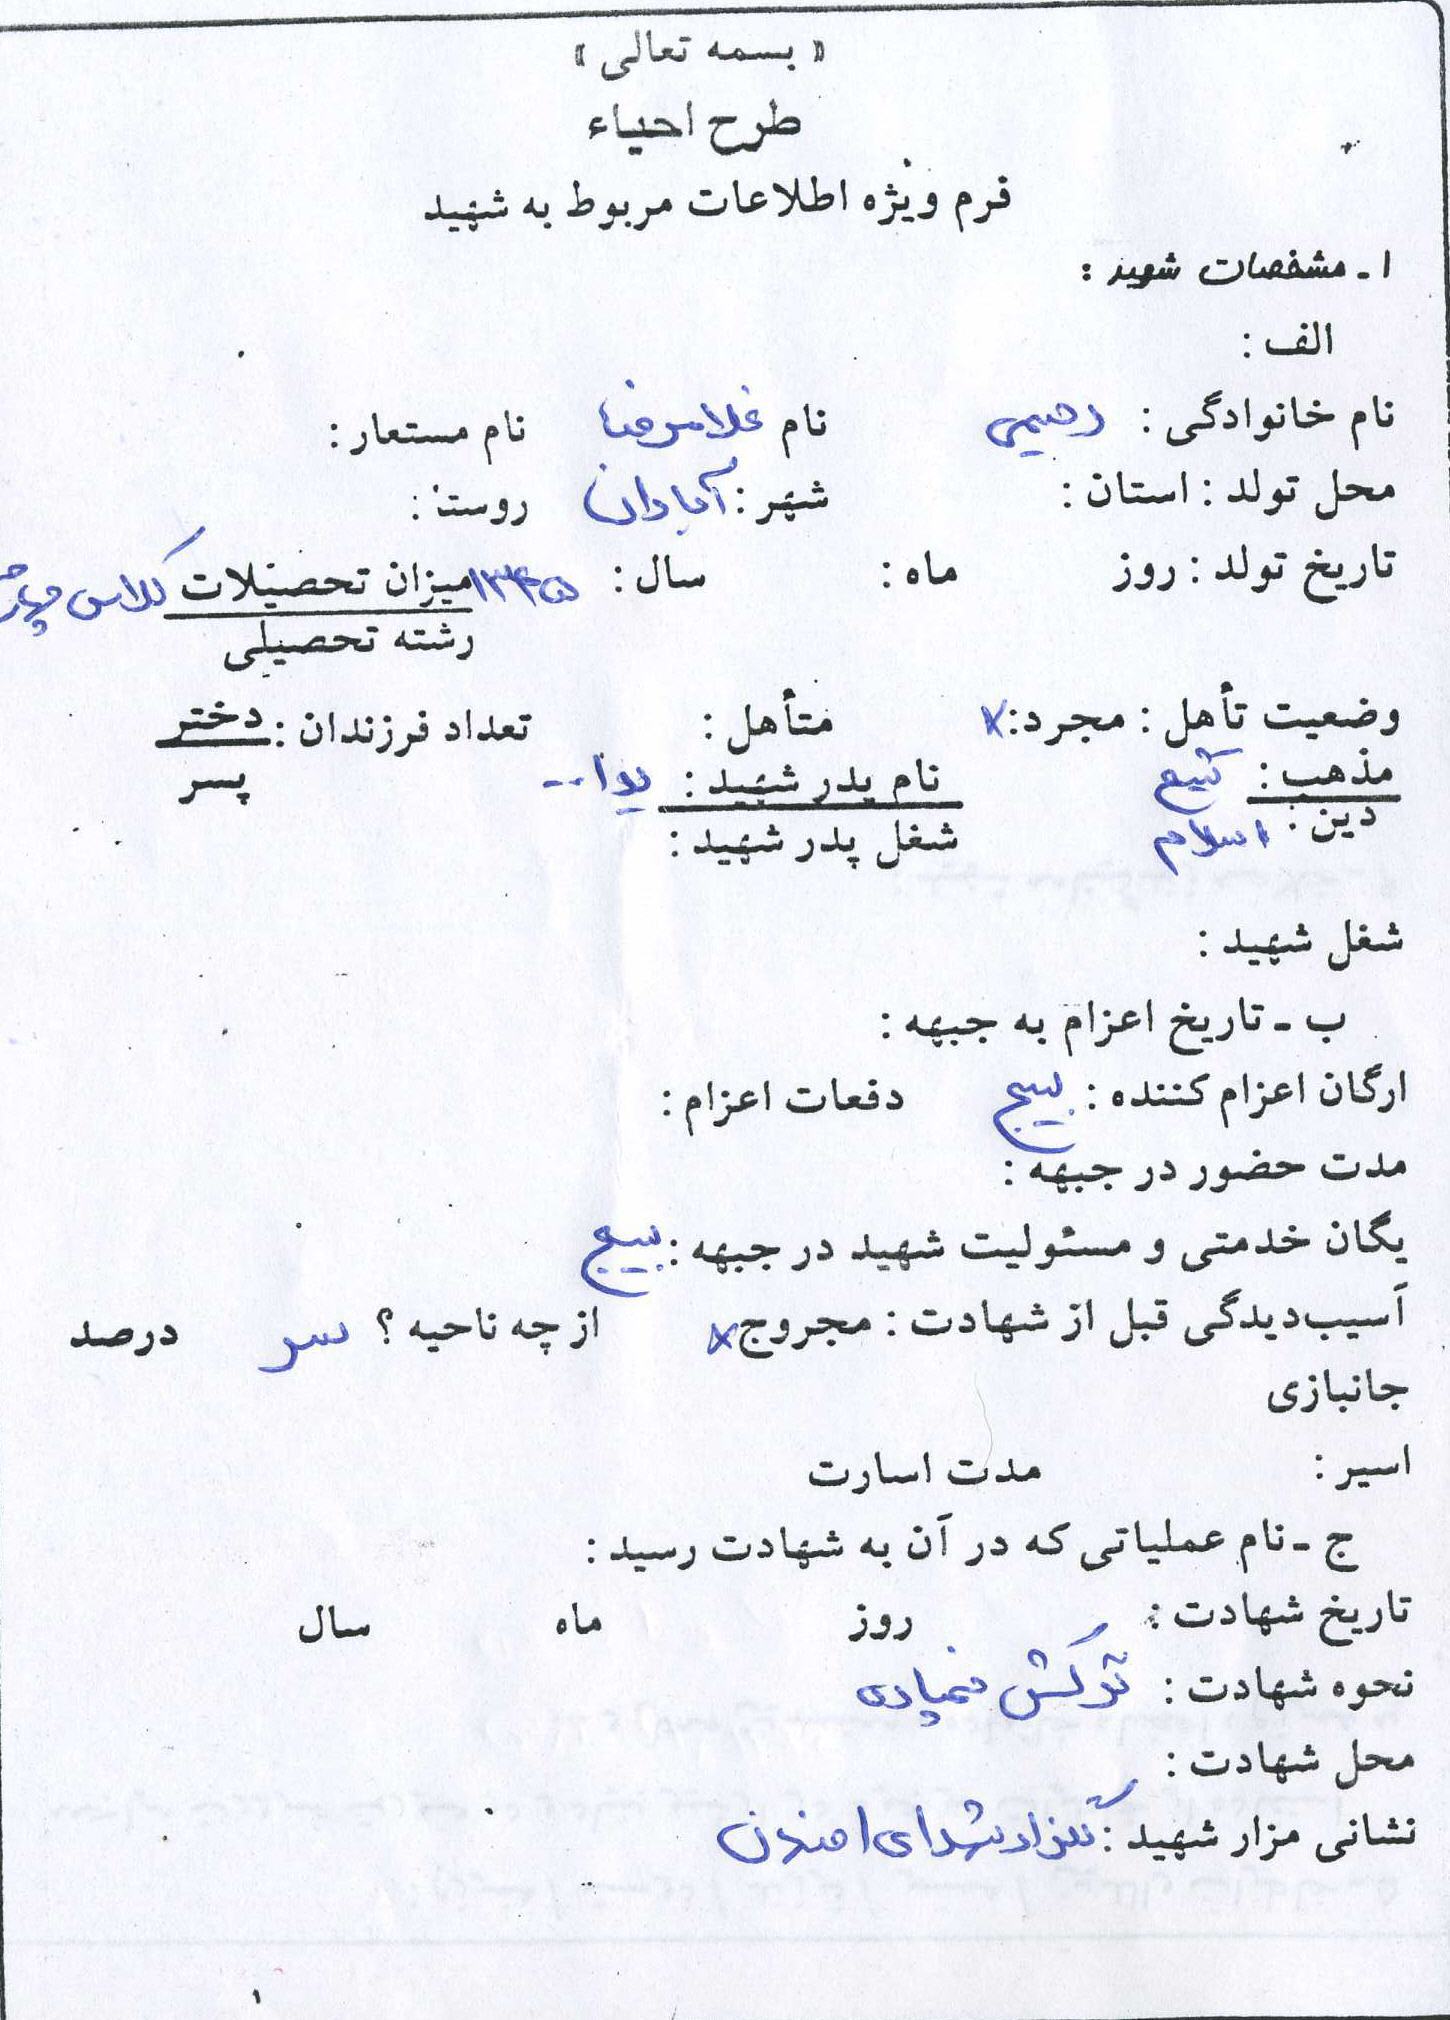 « بسمه تعالی »
طرح احیاء
فرم ویژه اطلاعات مربوط به شهید
۱ ـ مشخصات شهید :
الف :
نام خانوادگی : رحیمی نام غلامرضا نام مستعار :
محل تولد : استان : شهر : آبادان روستا :
تاریخ تولد : روز ماه : سال : ۱۳۴۵ میزان تحصیلات کلاس چهارم
رشته تحصیلی
وضعیت تأهل : مجرد : x متأهل : تعداد فرزندان : دختر
پسر
مذهب : تشیع نام پدر شهید : یدا...
دین : اسلام شغل پدر شهید :
شغل شهید :
ب ـ تاریخ اعزام به جبهه :
ارگان اعزام کننده : بسیج دفعات اعزام :
مدت حضور در جبهه :
یگان خدمتی و مسئولیت شهید در جبهه : بسیج
آسیب‌دیدگی قبل از شهادت : مجروح x از چه ناحیه ؟ سر درصد
جانبازی
اسیر : مدت اسارت
ج ـ نام عملیاتی که در آن به شهادت رسید :
تاریخ شهادت : روز ماه سال
نحوه شهادت : ترکش خمپاره
محل شهادت :
نشانی مزار شهید : گلزار شهدای
۱